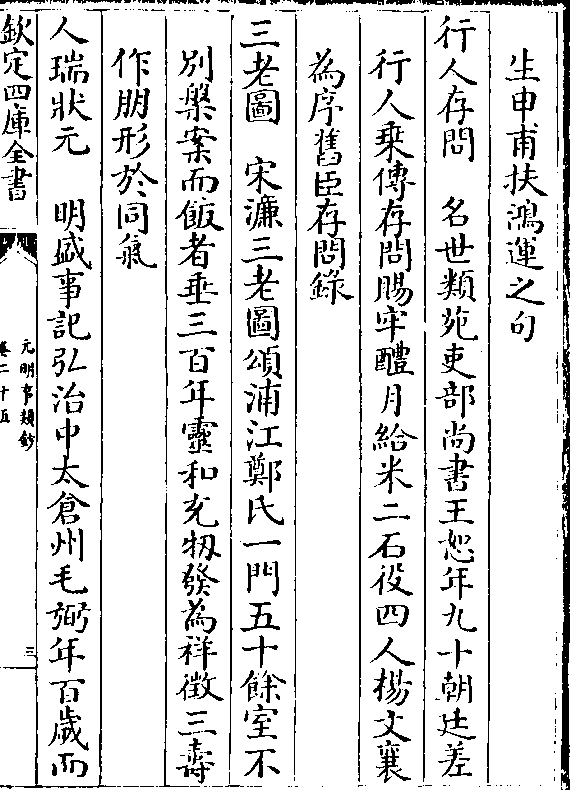 生申甫扶鴻運之句
行人存問　名世類苑吏部尚書王恕年九十朝廷差
行人乗傳存問賜牢醴月給米二石役四人楊文襄
為序舊臣存問錄
三老圖　宋濂三老圖頌浦江鄭氏一門五十餘室不
別槃案而飯者垂三百年靈和充牣發為祥徴三壽
作朋形於同氣
人瑞狀元　明盛事記弘治中太倉州毛弼年百歲而
欽定四庫全書
元明事類鈔
卷二十五
三